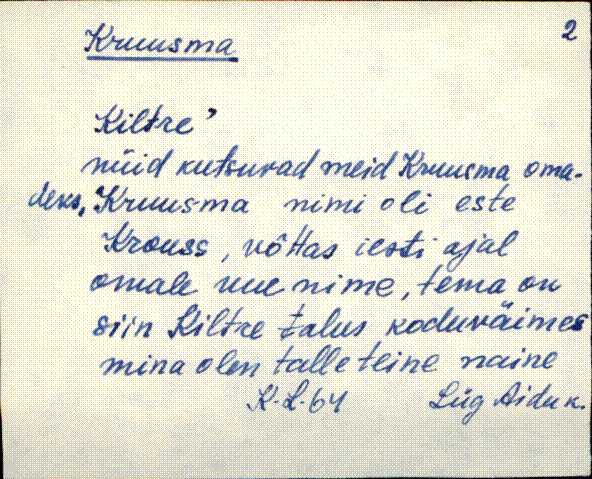 2
Kruusma
Kiltre'
nüid kutsuvad meid Kruusma oma-
deks, Kruusma nimi oli este
Krouss, võttas iesti ajal
omale uue nime, tema on
siin Kiltre talus koduväimes
mina olen talle teine naine
K.L. 64 Lüg Aidu k.